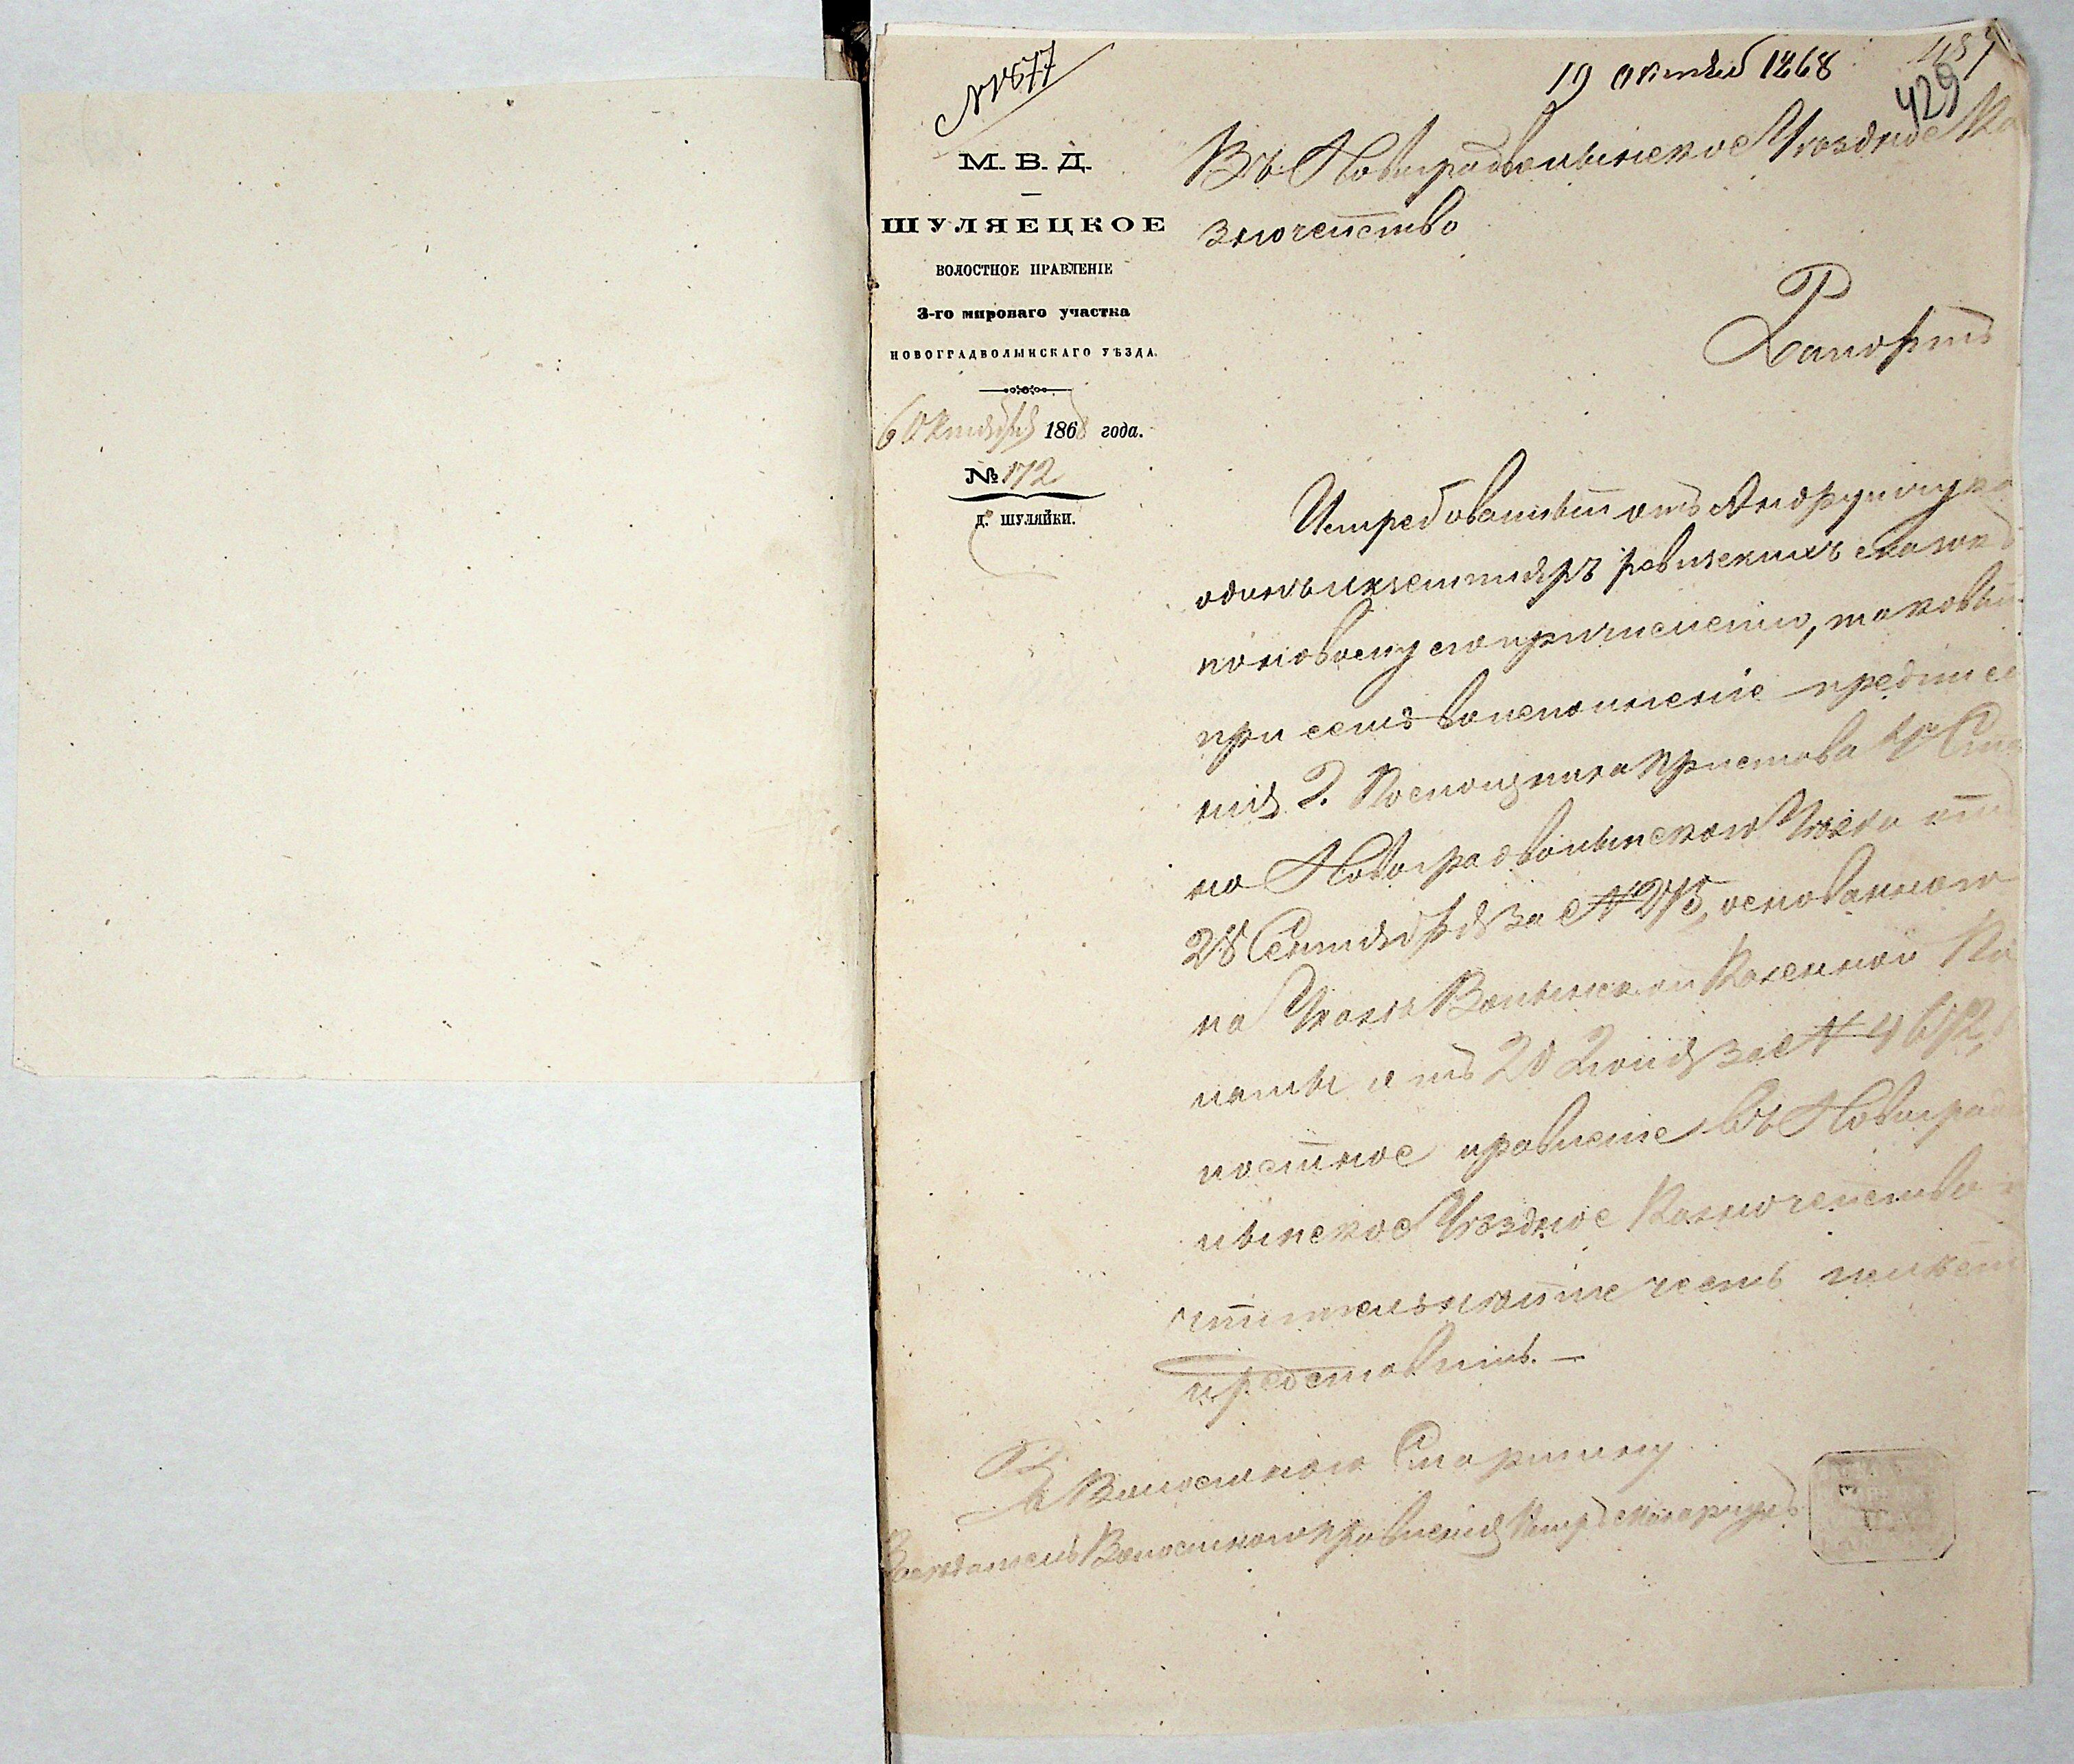 № 1877
19 октяб 1868
429
М. В. Д.
ШУЛЯЕЦКОЕ
ВОЛОСТНОЕ ПРАВЛЕНІЕ
3-го мироваго участка
НОВОГРАДВОЛЫНСКАГО УѢЗДА.
6 Октября 1868 года.
№ 172
Д. ШУЛЯЙКИ.
Въ Новоградволынское Уѣздное Ка
значейство
Рапортъ
Истребованный отъ Андрущука
одинъ экземпляръ ревизскихъ сказокъ
по новому его причисленію, таковый
при семъ во исполненіе предписа
нія Г. Помощника Пристава 1го Ста
на Новоградволынского Уѣзда отъ
28 Сентября за № 275, основанного
на Указѣ Волынской Казенной Па
латы отъ 20 Іюня за № 4672,
постное правленіе въ Новоград
лынское Уѣздное Казначейство
чтительнѣйше честь имѣетъ
представить.—
За Волостного Старшину
Засѣдатель Волостного Правленія Петръ